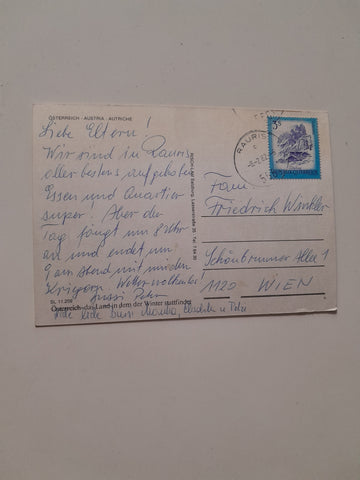 ÖSTERREICH - AUSTRIA - AUTRICHE
Liebe Eltern!
Wir sind in Rauris
allerbestens aufgehoben
Essen und Quartier
super. Aber der
Tag fängt um 8 Uhr
an und endet um
9 am Abend mit müden
Kriegern. Wetter wolkenlos
Bussi Peter
Österreich - das Land in dem der Winter stattfindet
RAURIS
3 S
Fam.
Friedrich Winkler
Schönbrunner Allee 1
1120 WIEN